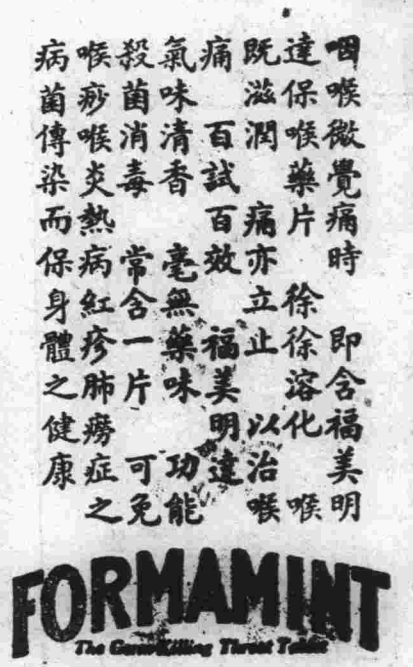 咽喉微覺痛時 即含福美明
達保喉藥片 徐徐溶化 喉
既滋潤 痛亦立止 以治喉
痛 百試百效 福美明達
氣味清香 毫無藥味 功能
殺菌消毒 常含一片 可免
喉痧喉炎熱病紅疹肺癆症之
病菌傳染而保身體之健康
FORMAMINT
The Germ-Killing Throat Tablet